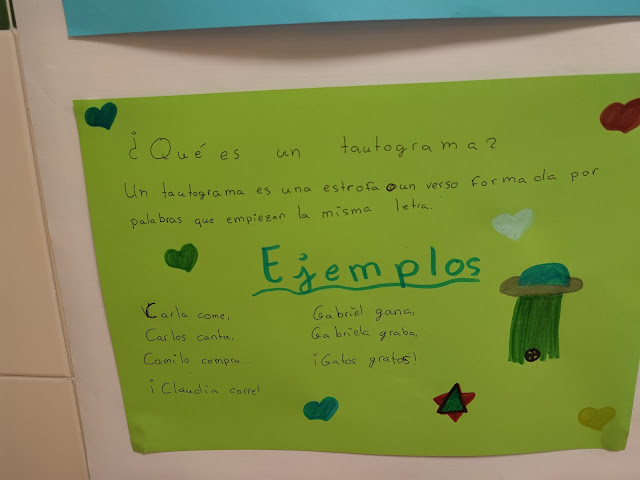 ¿Qué es un tautograma?
Un tautograma es una estrofa o un verso formada por
palabras que empiezan la misma letra.
Ejemplos
Carla come,
Carlos canta.
Camilo compra...
¡Claudia corre!
Gabriel gana,
Gabriela graba,
¡Gatos gratis!